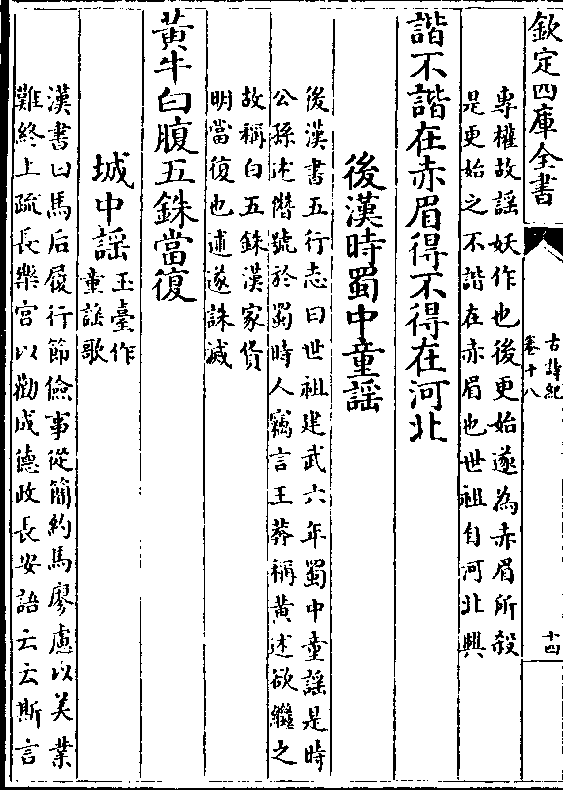 欽定四庫全書
古詩紀
卷十八
十四
專權故謡妖作也後更始遂為赤眉所殺
是更始之不諧在赤眉也世祖自河北興
諧不諧在赤眉得不得在河北
後漢時蜀中童謡
後漢書五行志曰世祖建武六年蜀中童謡是時
公孫述僭號於蜀時人竊言王莽稱黄述欲繼之
故稱白五銖漢家貨
明當復也述遂誅滅
黄牛白腹五銖當復
城中謡
玉臺作
童謡歌
漢書曰馬后履行節儉事從簡約馬廖慮以美業
難終上疏長樂宫以勸成德政長安語云云斯言